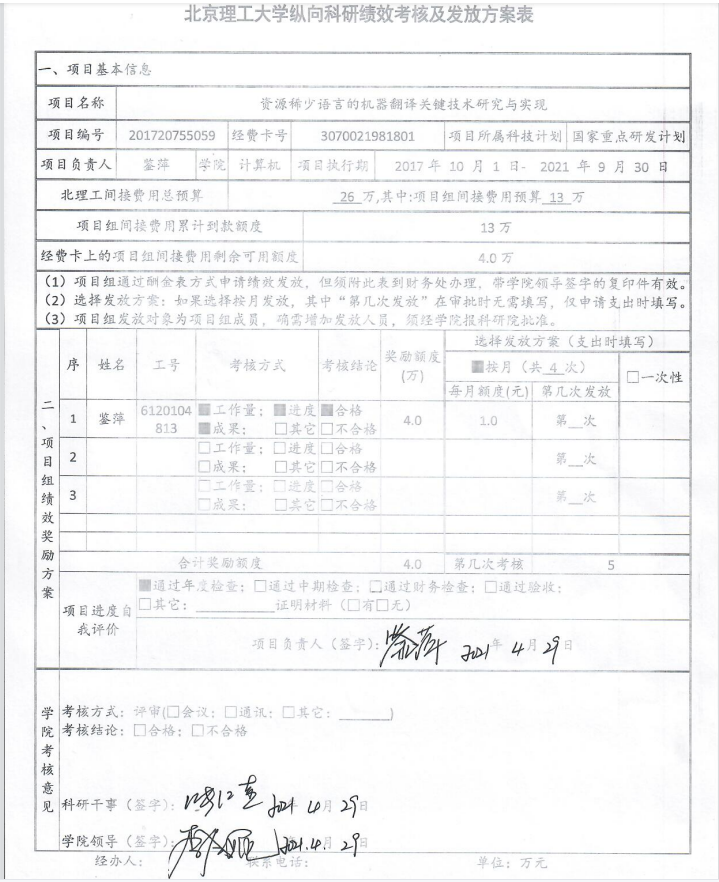 北京理工大学纵向科研绩效考核及发放方案表
一、项目基本信息
项目名称 资源稀少语言的机器翻译关键技术研究与实现
项目编号 201720755059 经费卡号 3070021981801 项目所属科技计划 国家重点研发计划
项目负责人 鉴萍 学院 计算机 项目执行期 2017 年 10 月 1 日- 2021 年 9 月 30 日
北理工间接费用总预算 26 万,其中:项目组间接费用预算 13 万
项目组间接费用累计到款额度 13 万
经费卡上的项目组间接费用剩余可用额度 4.0 万
(1) 项目组通过酬金表方式申请绩效发放，但须附此表到财务处办理，带学院领导签字的复印件有效。
(2) 选择发放方案：如果选择按月发放，其中“第几次发放”在审批时无需填写，仅申请支出时填写。
(3) 项目组发放对象为项目组成员，确需增加发放人员，须经学院报科研院批准。
二、项目组绩效奖励方案
序 姓名 工号 考核方式 考核结论 奖励额度(万) 选择发放方案（支出时填写）
■按月（共 4 次） □一次性
每月额度(元) 第几次发放
1 鉴萍 6120104813 ■工作量； ■进度 ■合格 4.0 1.0 第__次
■成果； □其它 □不合格
2 □工作量； □进度 □合格 第__次
□成果； □其它 □不合格
3 □工作量； □进度 □合格 第__次
□成果； □其它 □不合格
合计奖励额度 4.0 第几次考核 5
项目进度自我评价
■通过年度检查；□通过中期检查；□通过财务检查；□通过验收；
□其它：________证明材料（□有□无）
项目负责人（签字）：鉴萍 2021年 4月 29日
学院考核意见
考核方式：评审(□会议；□通讯；□其它：______)
考核结论：□合格；□不合格
科研干事（签字）： 2021 4月 29日
学院领导（签字）： 2021.4.月 29日
经办人： 联系电话： 单位：万元